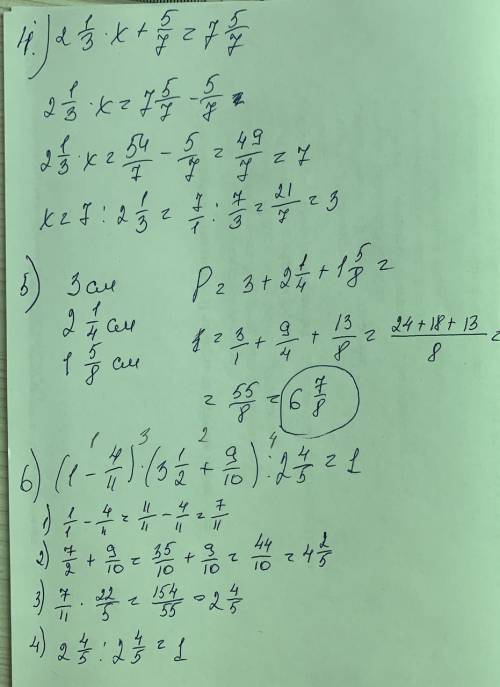 4.) 2 1/3 · x + 5/7 = 7 5/7
2 1/3 · x = 7 5/7 - 5/7 =
2 1/3 · x = 54/7 - 5/7 = 49/7 = 7
x = 7 : 2 1/3 = 7/1 : 7/3 = 21/7 = 3
5) 3 см P = 3 + 2 1/4 + 1 5/8 =
2 1/4 см
1 5/8 см = 3/1 + 9/4 + 13/8 = (24+18+13)/8 =
= 55/8 = 6 7/8
1 3 2 4
6) (1 - 4/11) · (3 1/2 + 9/10) : 2 4/5 = 1
1) 1/1 - 4/11 = 11/11 - 4/11 = 7/11
2) 7/2 + 9/10 = 35/10 + 9/10 = 44/10 = 4 2/5
3) 7/11 · 22/5 = 154/55 = 2 4/5
4) 2 4/5 : 2 4/5 = 1